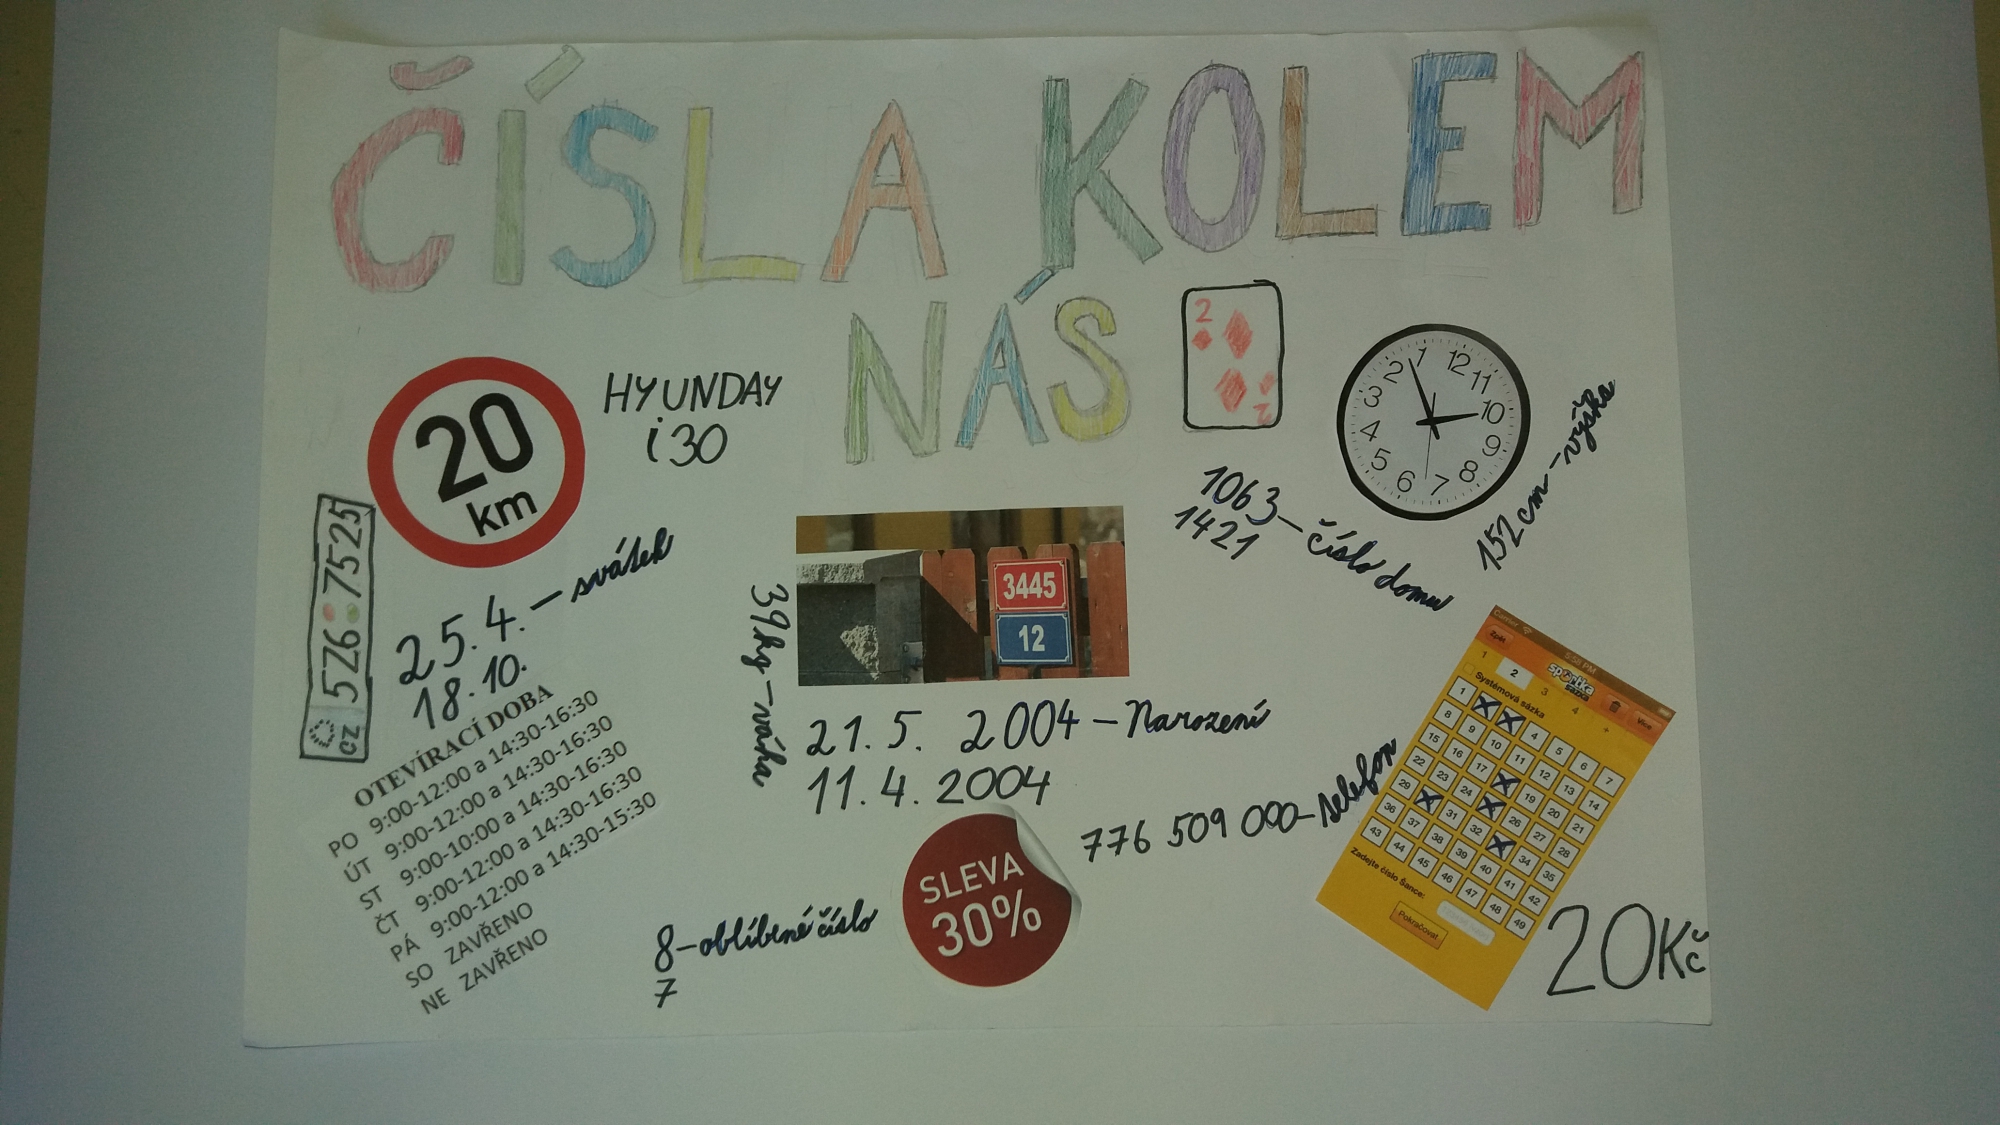 ČÍSLA KOLEM
NÁS
2
2
20
km
HYUNDAY
i30
12
11
10
9
8
7
6
5
4
3
2
1
152 cm - výška
1063 - číslo domu
1421
CZ 5Z6 7525
25.4. - svátek
18.10.
3445
12
39kg - váha
OTEVÍRACÍ DOBA
PO 9:00-12:00 a 14:30-16:30
ÚT 9:00-12:00 a 14:30-16:30
ST 9:00-10:00 a 14:30-16:30
ČT 9:00-12:00 a 14:30-16:30
PÁ 9:00-12:00 a 14:30-15:30
SO ZAVŘENO
NE ZAVŘENO
21. 5. 2004 - Narození
11. 4. 2004
776 509 000 - telefon
SLEVA
30%
8 - oblíbené číslo
7
5:58 PM
Zpět
sportka
sázka
Více
1 2 3 4 +
Systémová sázka
1 4 5 6 7
8 9 10 11 12 13 14
15 16 17 19 20 21
22 23 24 26 27 28
29 31 32 34 35
36 37 38 39 40 41 42
43 44 45 46 47 48 49
Zadejte číslo Šance:
Pokračovat
20Kč